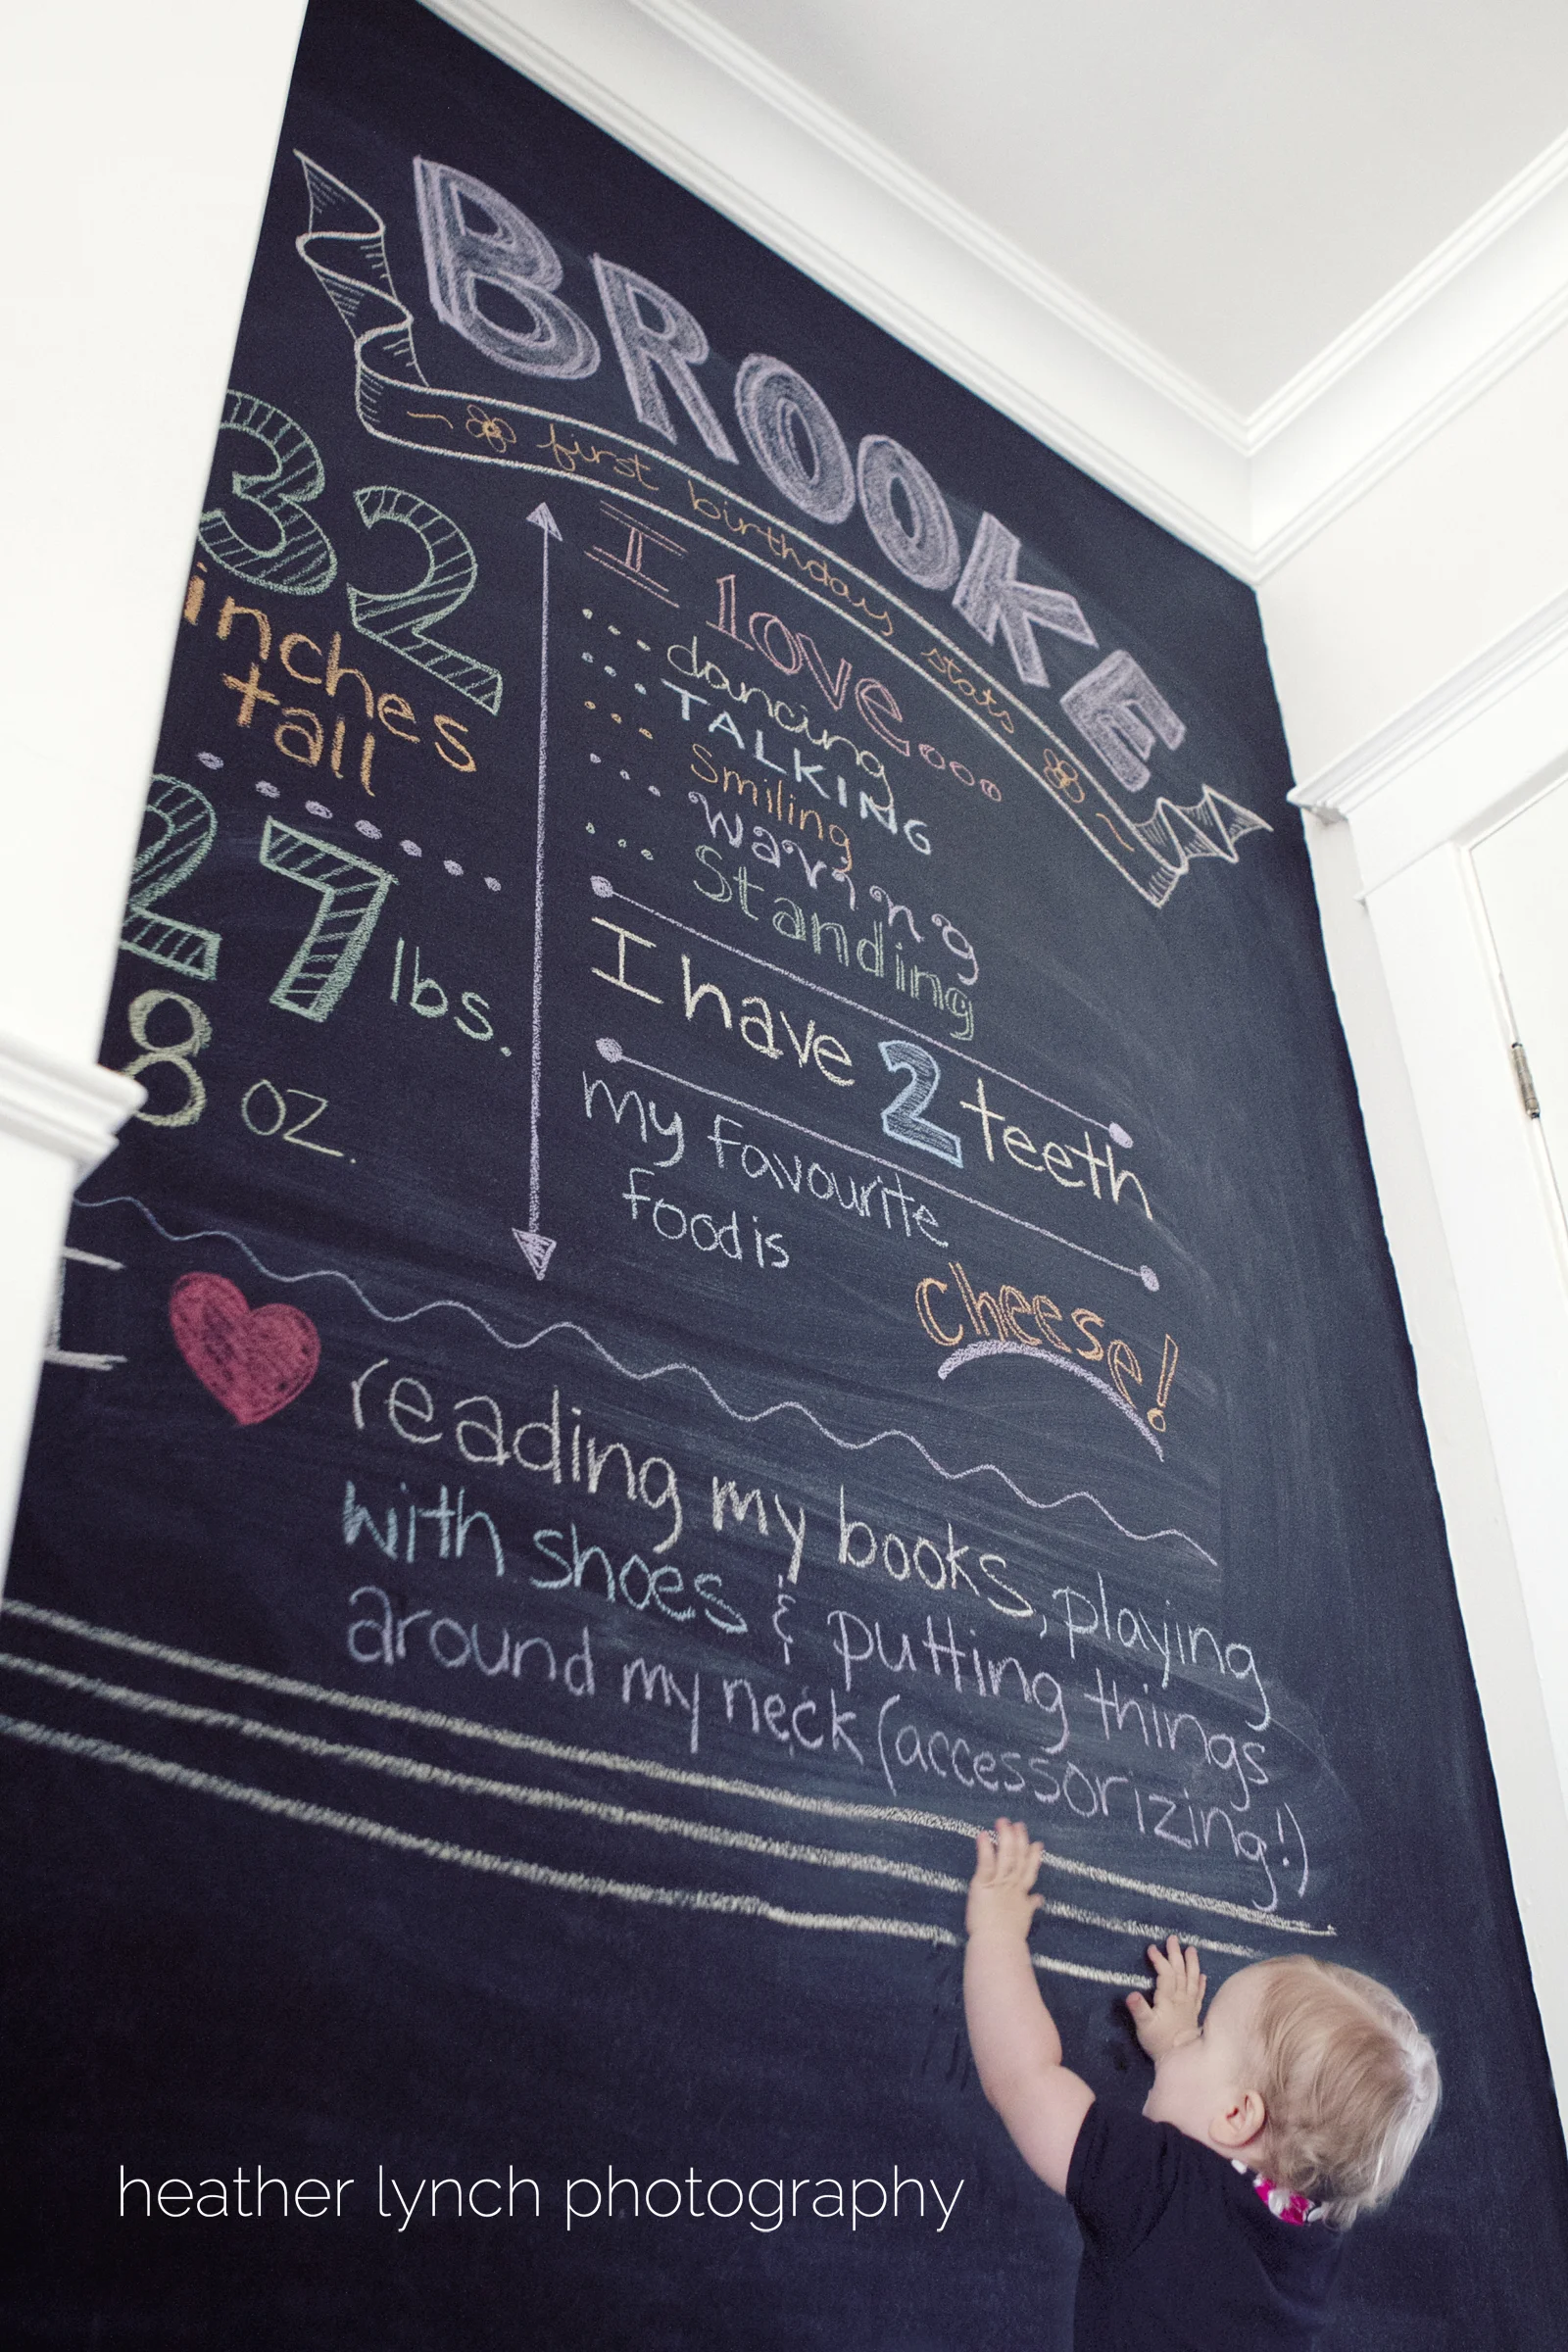 BROOKE
first birthday stats
32
inches
tall
27 lbs.
8 oz.
I love...
dancing
TALKING
smiling
waving
Standing
I have 2 teeth
my favourite
food is
cheese!
I reading my books, playing
with shoes & putting things
around my neck (accessorizing!)
heather lynch photography